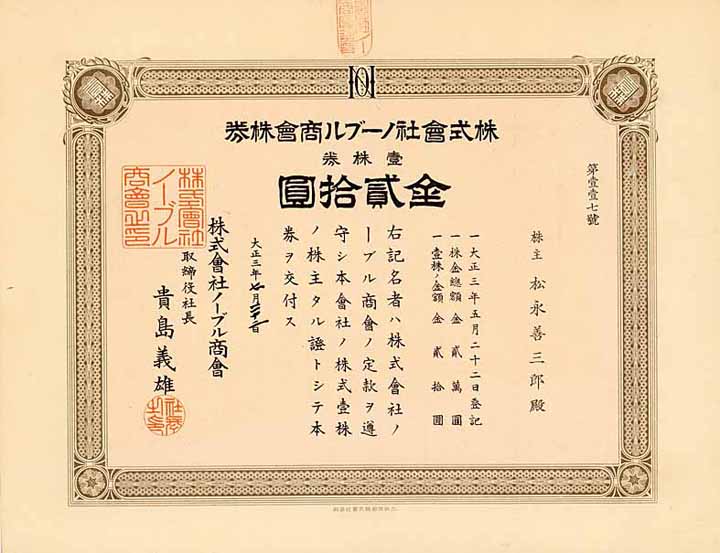 株式會社ノーブル商會株券
壹株券
金貳拾圓
第壹壹七號
株主 松永善三郎殿
一大正三年五月二十二日登記
一株金總額金貳萬圓
一壹株ノ金額金貳拾圓
右記名者ハ株式會社ノ
ーブル商會ノ定款ヲ遵
守シ本會社ノ株式壹株
ノ株主タル證トシテ本
券ヲ交付ス
大正三年七月三十一日
株式會社ノーブル商會
取締役社長
貴島義雄
株式會社
ノーブル
商會之印